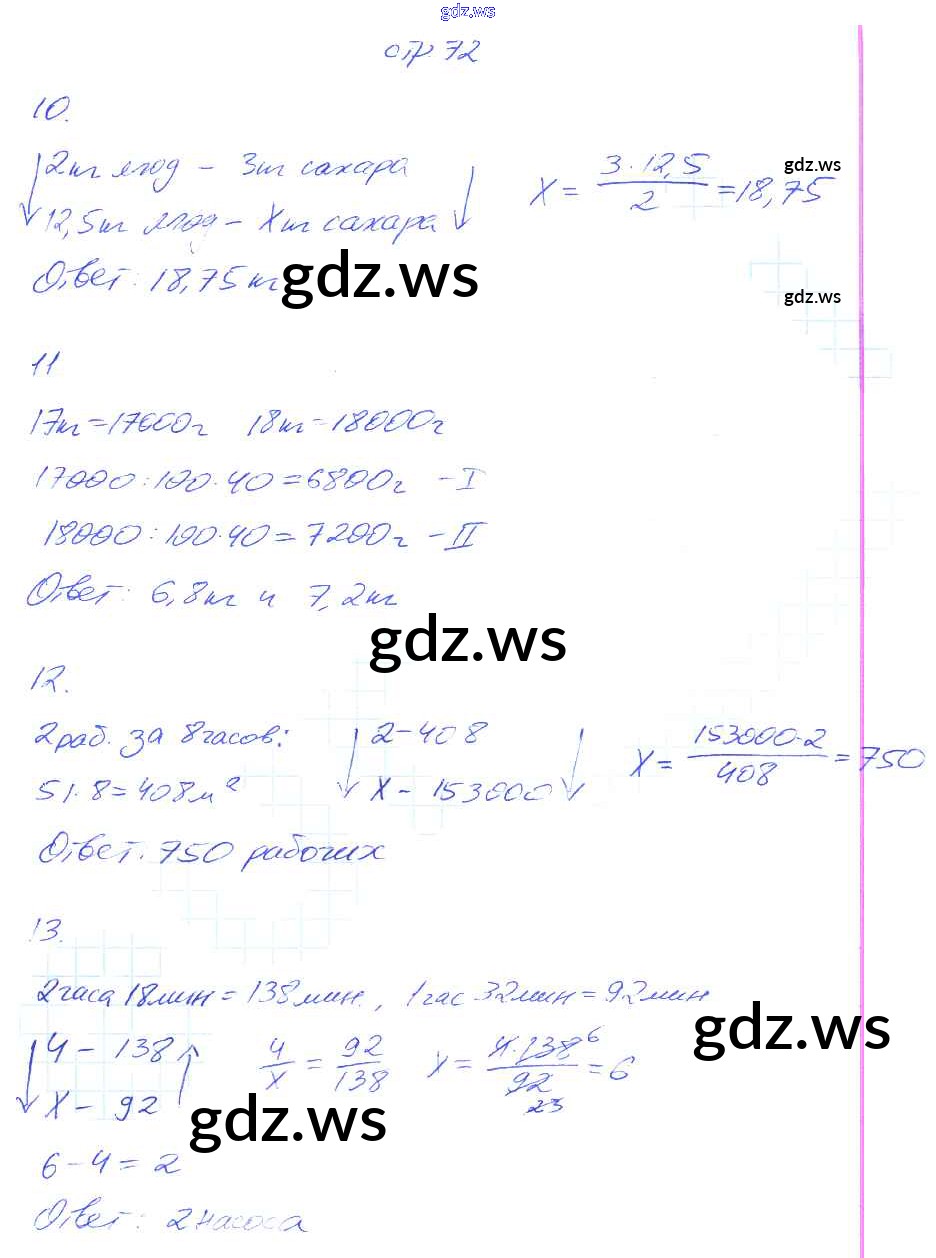 gdz.ws
стр. 72
10.
2кг ягод – 3кг сахара
12,5кг ягод – Xкг сахара
X = 3·12,5 / 2 = 18,75
gdz.ws
Ответ: 18,75 кг
gdz.ws
gdz.ws
11
17кг=17000г 18кг=18000г
17000:100·40=6800г – I
18000:100·40=7200г – II
Ответ: 6,8кг и 7,2кг
gdz.ws
12.
2раб. за 8часов:
51·8=408м²
2–408
X – 153000
X = 153000·2 / 408 = 750
Ответ. 750 рабочих
13.
2часа 18мин = 138мин, 1час 32мин = 92мин
gdz.ws
4 – 138
X – 92
4/X = 92/138
X = 4·138 6 / 92 23 = 6
gdz.ws
6–4=2
Ответ: 2 насоса